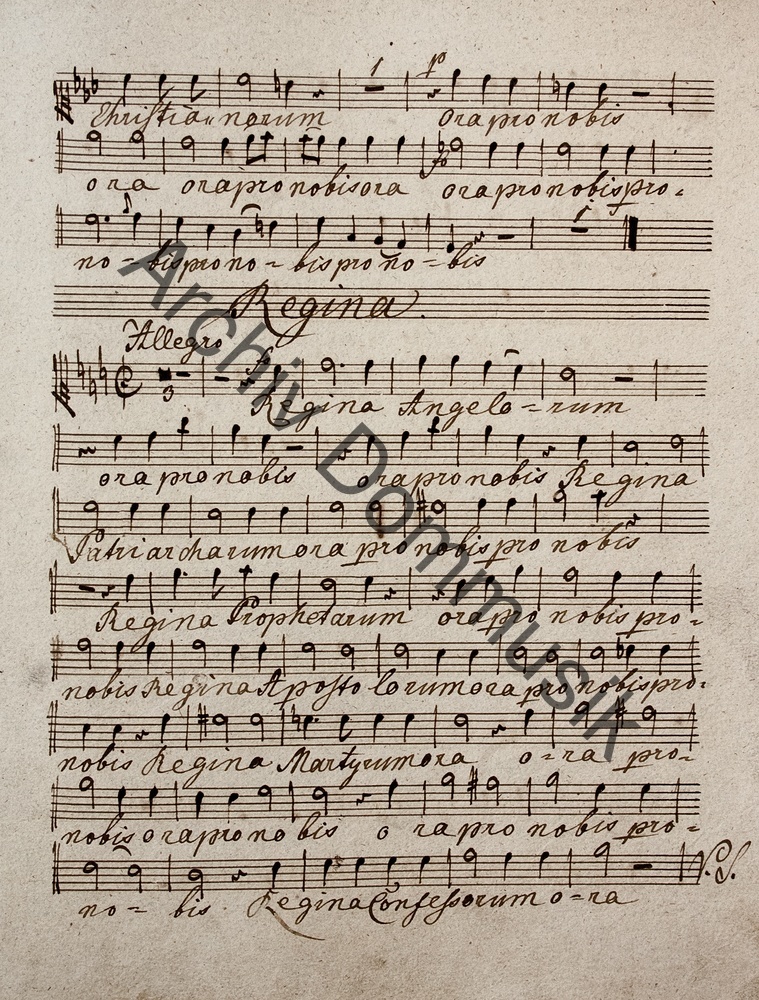 1 p
Christia- norum ora pro nobis
fo
ora ora pro nobis ora ora pro nobis pro-
1
no- bis pro no- bis pro no- bis
Regina.
Allegro
3 fo
Regina Angelo- rum
ora pro nobis ora pro nobis Regina
Patriarcharum ora pro nobis pro nobis
Regina Prophetarum ora pro nobis pro-
nobis Regina Apostolorum ora pro nobis pro-
nobis Regina Martyrum ora o-ra pro-
nobis ora pro nobis o ra pro nobis pro-
V.S.
no- bis. Regina Confessorum o-ra
Archiv Dommusik